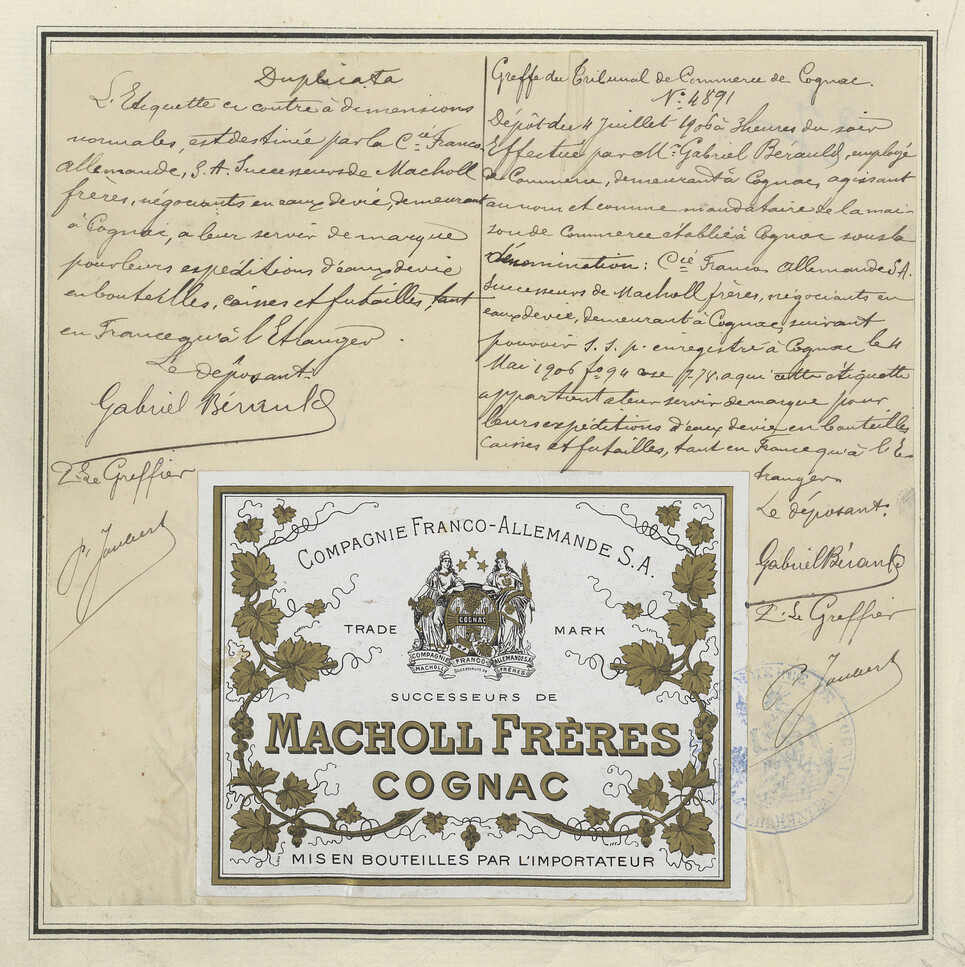 Duplicata
L'Etiquette ci contre à dimensions
normales, est destinée par la Cie Franco
allemande, S. A. Successeurs de Macholl
frères, négociants en eaux de vie, demeurant
à Cognac, a leur servir de marque
pour leurs expéditions d'eaux de vie
en bouteilles, caisses et futailles, tant
en France qu'à l'Etranger.
Le déposant.
Gabriel Bérauld
Le Greffier
Greffe du Tribunal de Commerce de Cognac.
No. 4891
Dépôt du 4 Juillet 1906 à 3 heures du soir
Effectué par Mr. Gabriel Bérauld, employé
de Commerce, demeurant à Cognac, agissant
au nom et comme mandataire de la mai-
son de Commerce établie à Cognac sous la
dénomination: Cie Franco Allemande S.A.
Successeurs de Macholl frères, négociants en
eaux de vie, demeurant à Cognac, suivant
pouvoir S. S. p. enregistré à Cognac le 4
Mai 1906 fo 94 case 778. a qui cette étiquette
appartient a leur servir de marque pour
leurs expéditions d'eaux de vie en bouteilles
caisses et futailles, tant en France qu'à l'E-
tranger
Le déposant.
Gabriel Bérauld
Le Greffier
COMPAGNIE FRANCO-ALLEMANDE S.A.
COGNAC
TRADE MARK
COMPAGNIE FRANCO-ALLEMANDE S.A.
MACHOLL SUCCESSEURS DE FRÈRES
SUCCESSEURS DE
MACHOLL FRÈRES
COGNAC
MIS EN BOUTEILLES PAR L'IMPORTATEUR